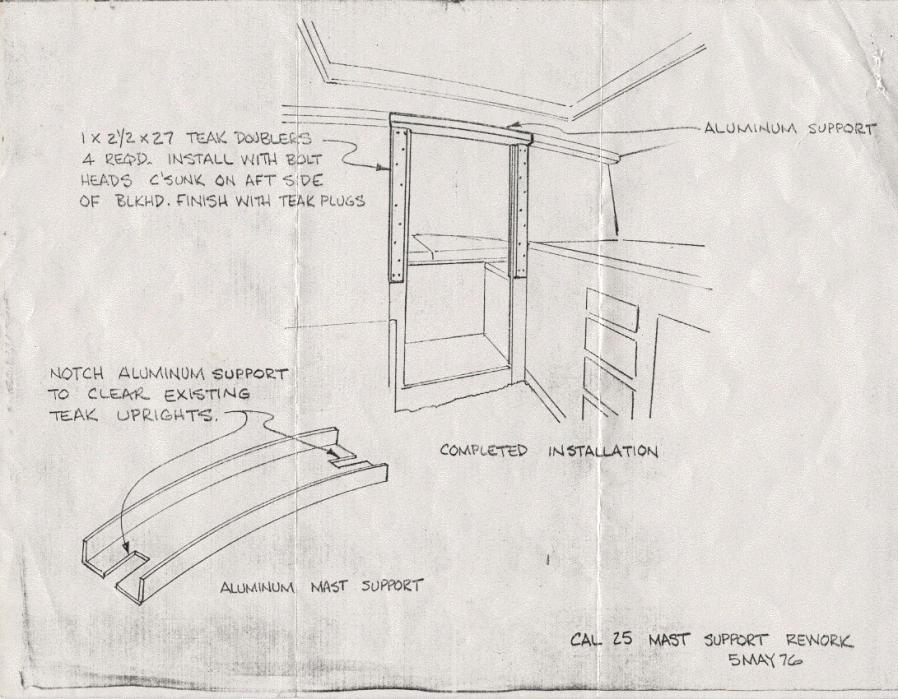 1 x 2 1/2 x 27 TEAK DOUBLERS
4 REQD. INSTALL WITH BOLT
HEADS C'SUNK ON AFT SIDE
OF BLKHD. FINISH WITH TEAK PLUGS
ALUMINUM SUPPORT
NOTCH ALUMINUM SUPPORT
TO CLEAR EXISTING
TEAK UPRIGHTS.
COMPLETED INSTALLATION
ALUMINUM MAST SUPPORT
CAL 25 MAST SUPPORT REWORK
5 MAY 76